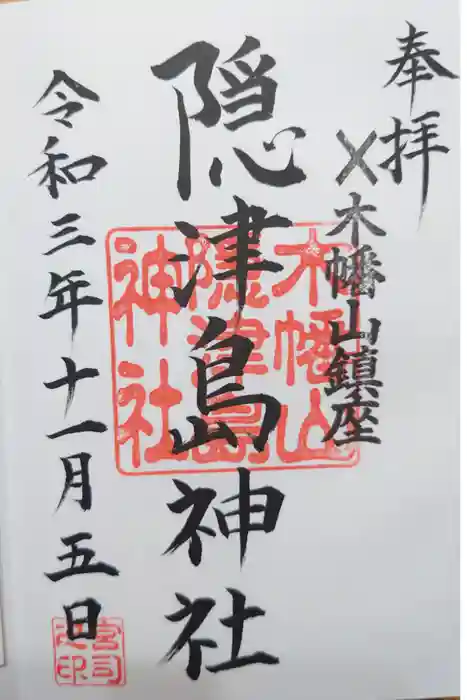 奉拝
〆木幡山鎮座
隠津島神社
令和三年十一月五日
木幡山
隠津島
神社
宮司
之印